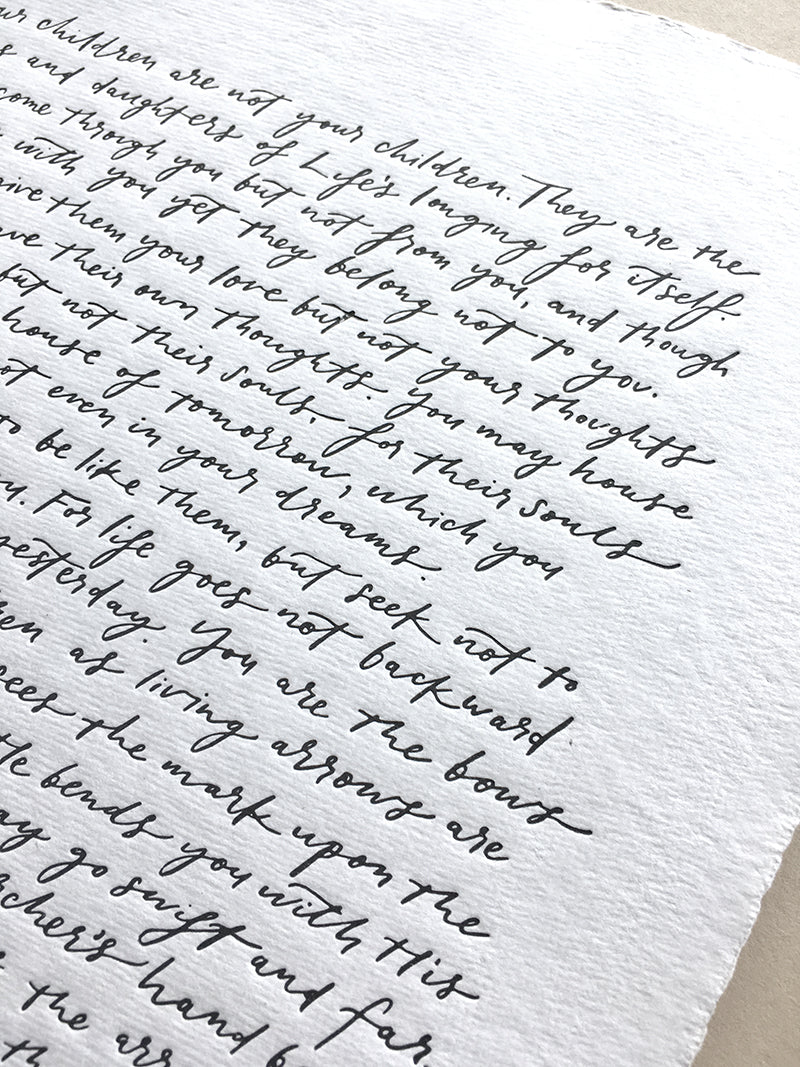 children are not your children. They are the
and daughters of Life's longing for itself.
come through you but not from you, and though
with you yet they belong not to you.
give them your love but not your thoughts
their own thoughts. You may house
but not their souls, for their souls
house of tomorrow, which you
even in your dreams.
to be like them, but seek not to
For life goes not backward
yesterday. You are the bows
as living arrows are
sees the mark upon the
bends you with His
go swift and far.
hand
the